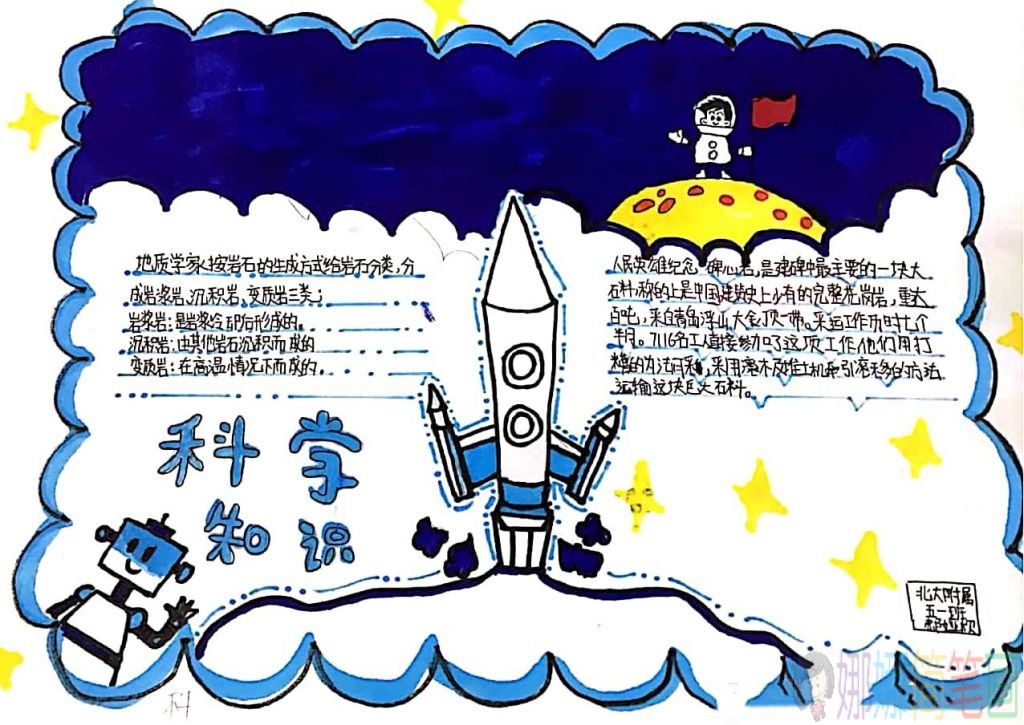 地质学家按岩石的生成方式给岩石分类,分
成岩浆岩,沉积岩、变质岩三类;
岩浆岩:是岩浆冷却后形成的。
沉积岩:由其他岩石沉积而成的
变质岩:在高温情况下而成的。
科学
知识
人民英雄纪念碑心石,是建碑中最主要的一块大
石料,称的上是中国建筑史上少有的完整花岗岩,重大
百吨,采自青岛浮山大金顶一带。采运工作历时七个
半月。7116名工人直接参加了这项工作他们用打
的办法开采,采用滚木及推土机牵引滚移的方法
运输这块巨大石料。
北大附属
五一班
娜娜简笔画